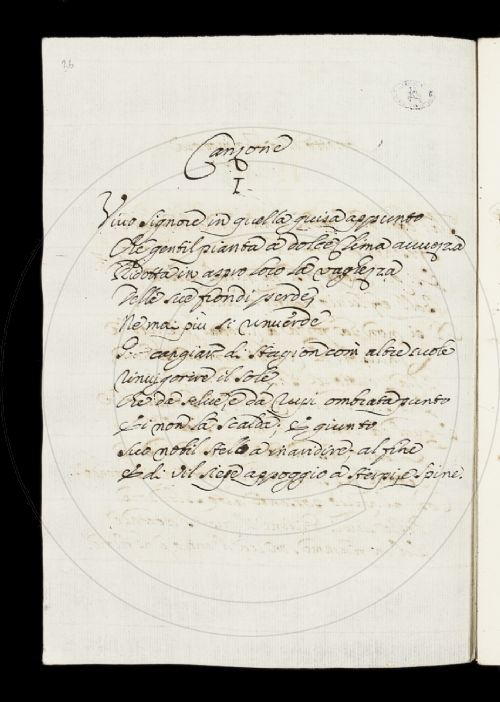 26
Canzone
I.
Vivo Signore in quella guisa appunto
Che gentil pianta à dolce clima avvezza
Ridotta in aspro loco la vaghezza
Delle sue frondi perde,
Ne mai più si rinverde
Per cangiar di stagion com' altre suole
Rinvigorire il sole,
Che da selve, e da rupi ombrata punto
Ei non la scalda, et giunto
suo nobil stelo a inaridire al fine
et di vil siepe appoggio a sterpi, e spine.